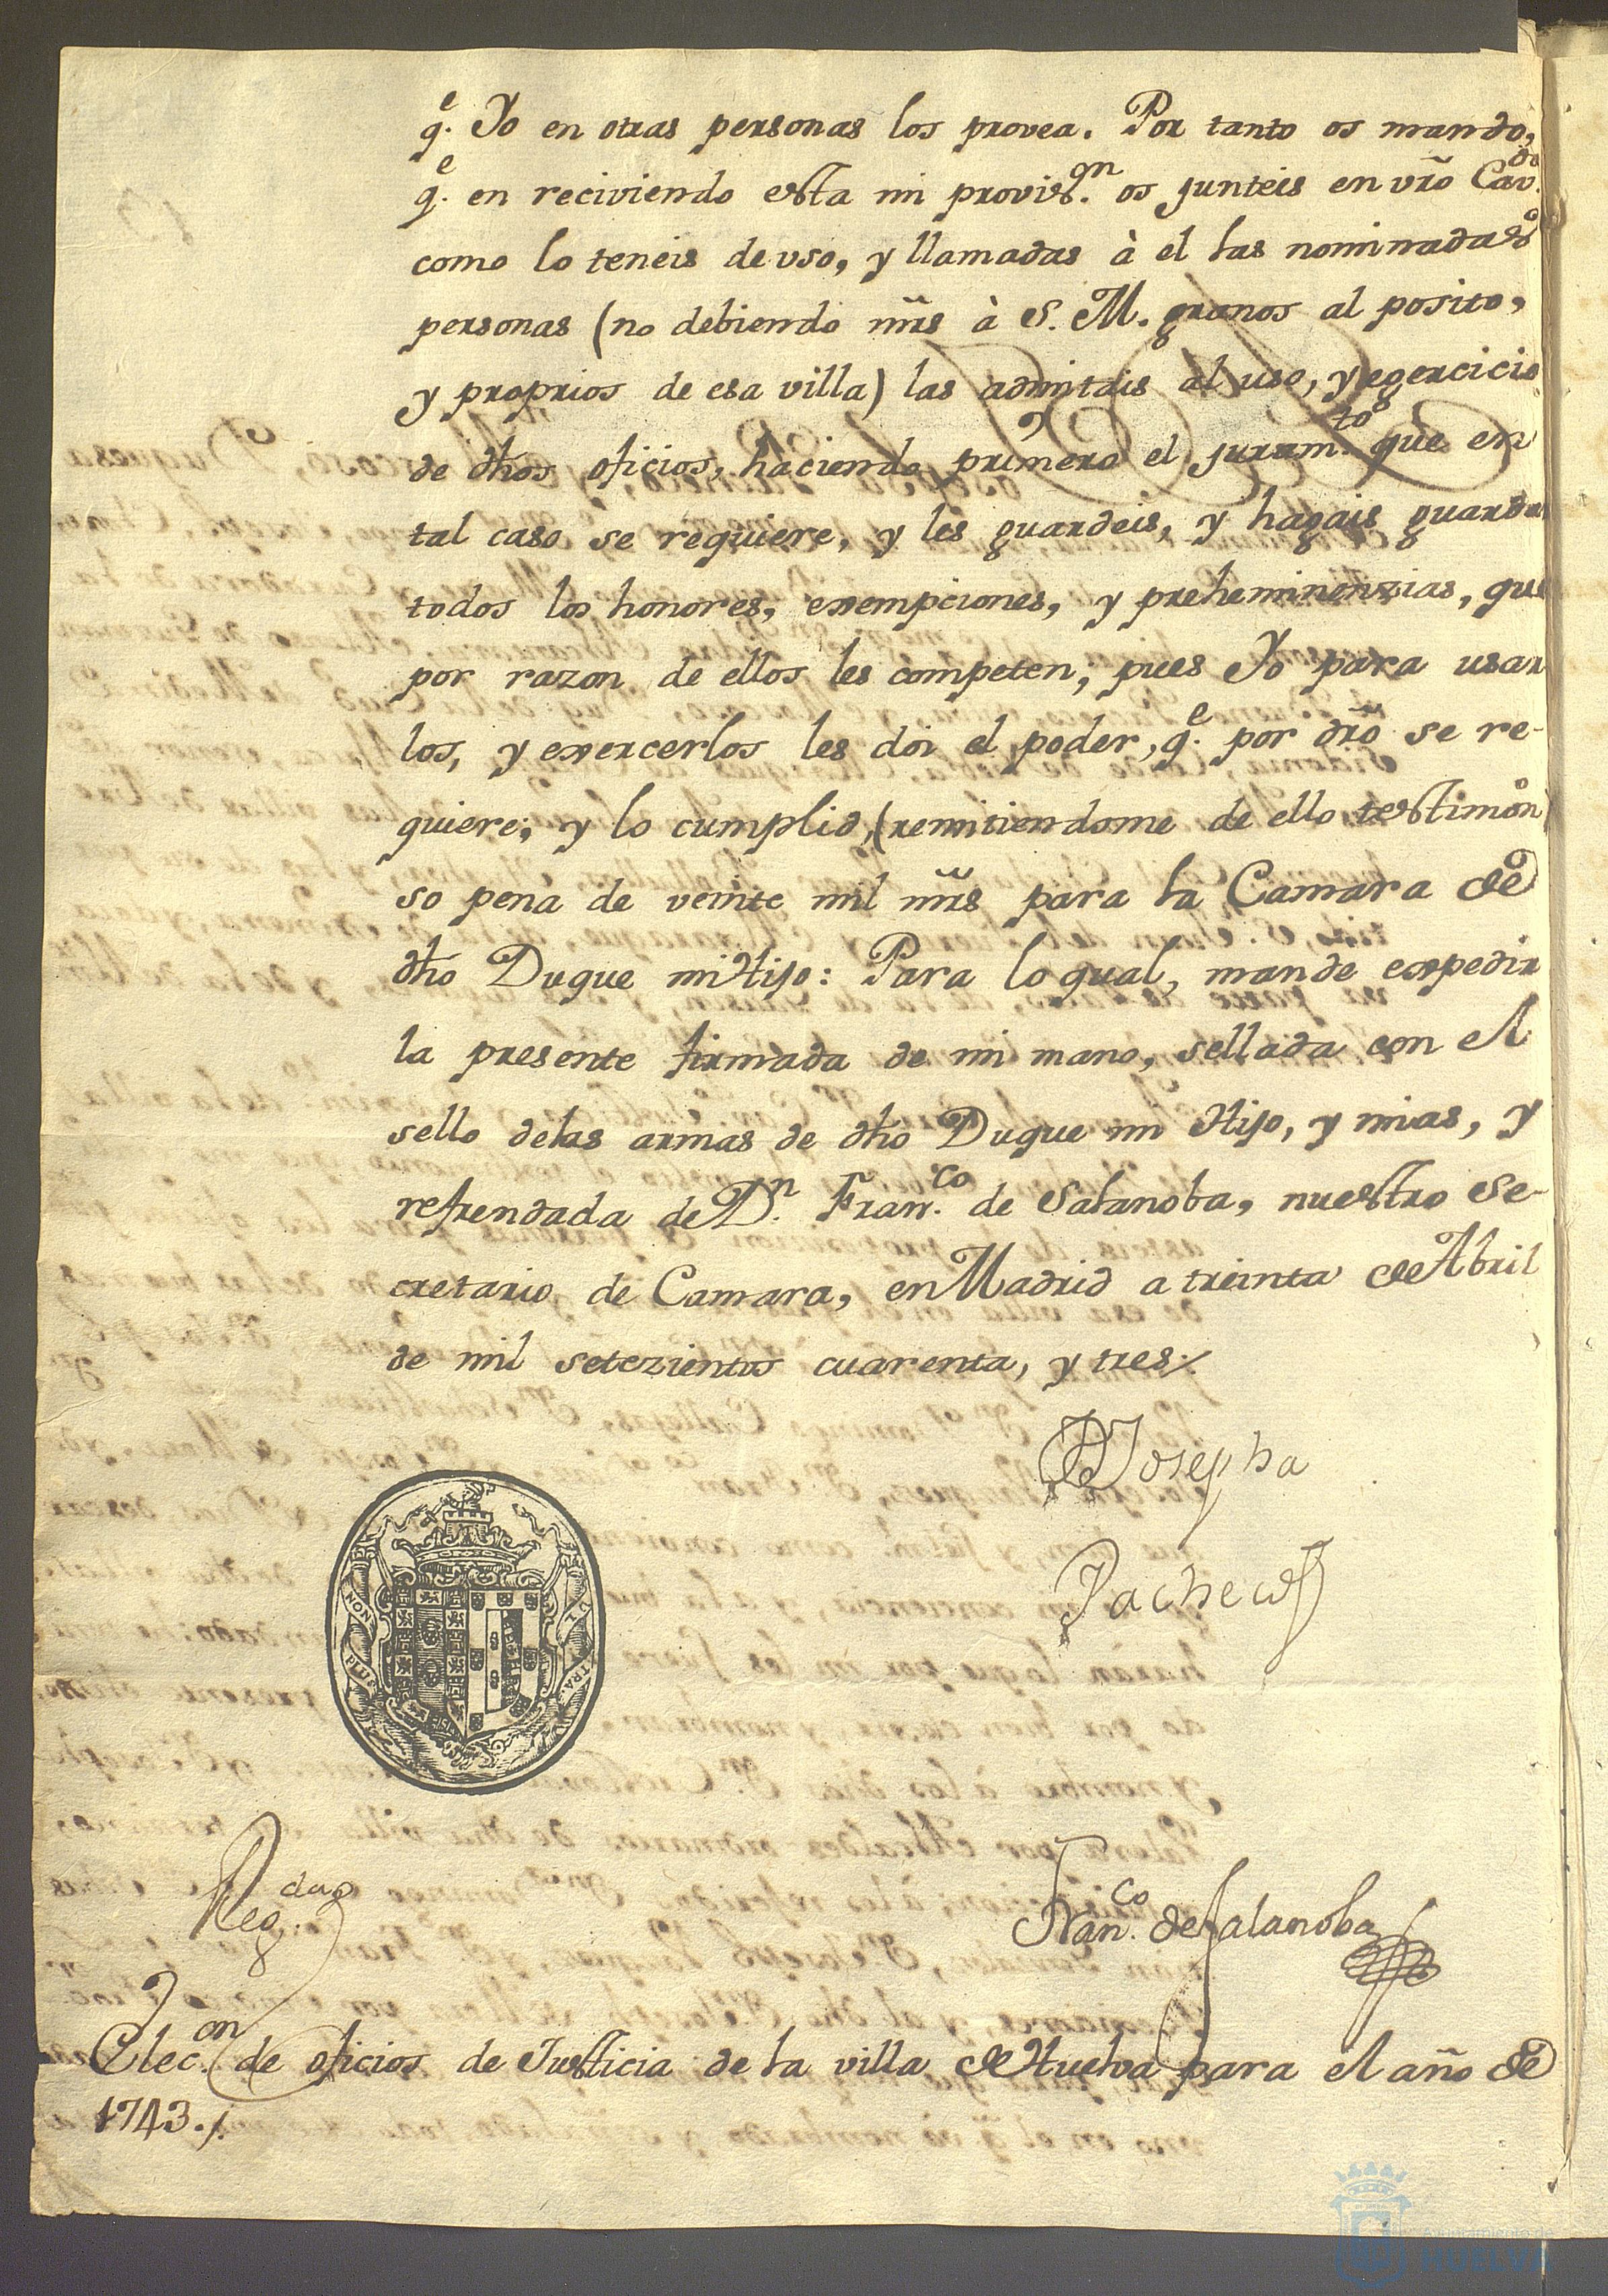 q.e Yo en otras personas los provea. Por tanto os mando,
q.e en reciviendo esta mi provis.on os junteis en vr̃o Cav.do
como lo teneis de uso, y llamadas à el las nominadas
personas (no debiendo mr̃s à S. M. granos al posito,
y proprios de esa villa) las admitais al uso, y egercicio
de dhos oficios, haciendo primero el juram.to que en
tal caso se requiere, y les guardeis, y hagais guardar
todos los honores, exempciones, y preheminenzias, que
por razon de ellos les competen; pues Yo para usar
los, y exercerlos les doi el poder, q.e por dr̃o se re-
quiere; y lo cumplid, (remitiendome de ello testimon)
so pena de veinte mil mr̃s para la Camara de
dho Duque mi Hijo: Para lo qual, mande expedir
la presente firmada de mi mano, sellada con el
sello de las armas de dho Duque mi Hijo, y mias, y
refrendada de D.n Fran.co de Salanoba, nuestro Se-
cretario de Camara, en Madrid a treinta de Abril
de mil setezientos cuarenta, y tres
Josepha
Pacheco
NON PLUS VLTRA
Reg.da
Fran.co de Salanoba
Elec.on de oficios de Justicia de la villa de Huelva para el año de
1743.
Ayuntamiento de
HUELVA